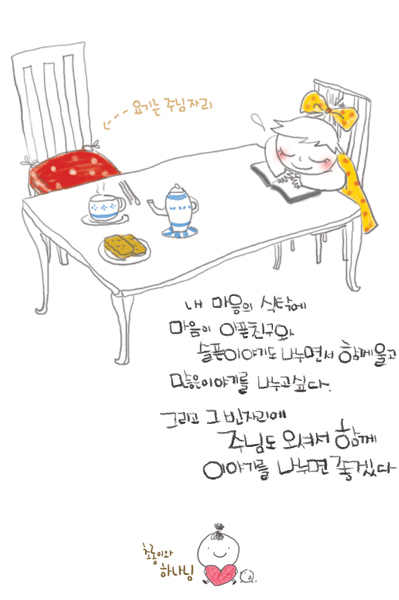 요기는 주님자리
내 마음의 식탁에
마음이 아픈친구와
슬픈이야기도 나누면서 함께울고
많은이야기를 나누고싶다.
그리고 그 빈자리에
주님도 오셔서 함께
이야기를 나누면 좋겠다
초롱이와
하나님